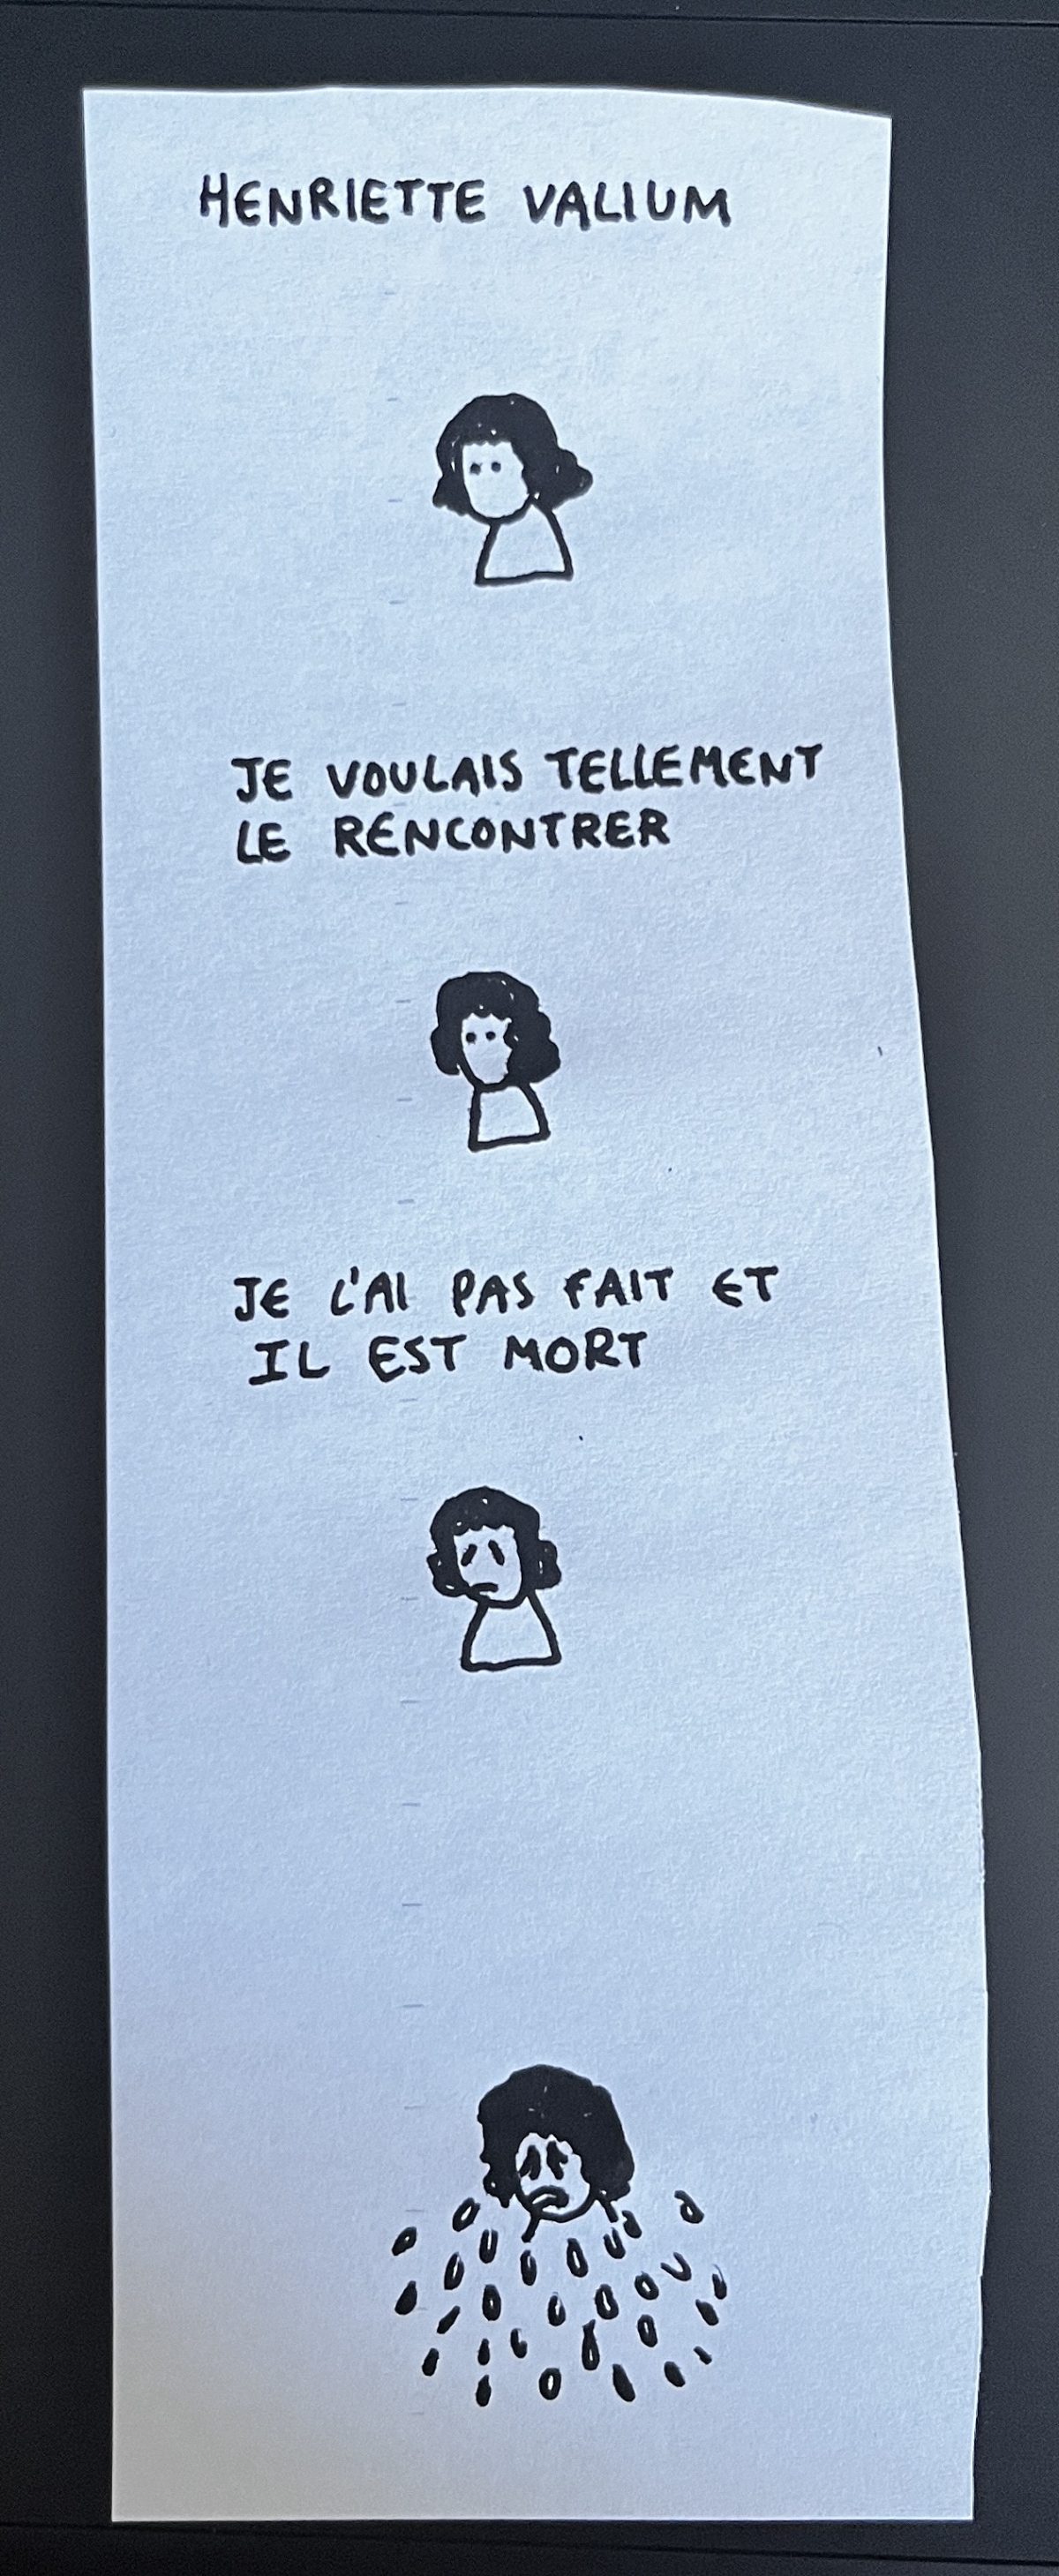 HENRIETTE VALIUM
JE VOULAIS TELLEMENT
LE RENCONTRER
JE L'AI PAS FAIT ET
IL EST MORT